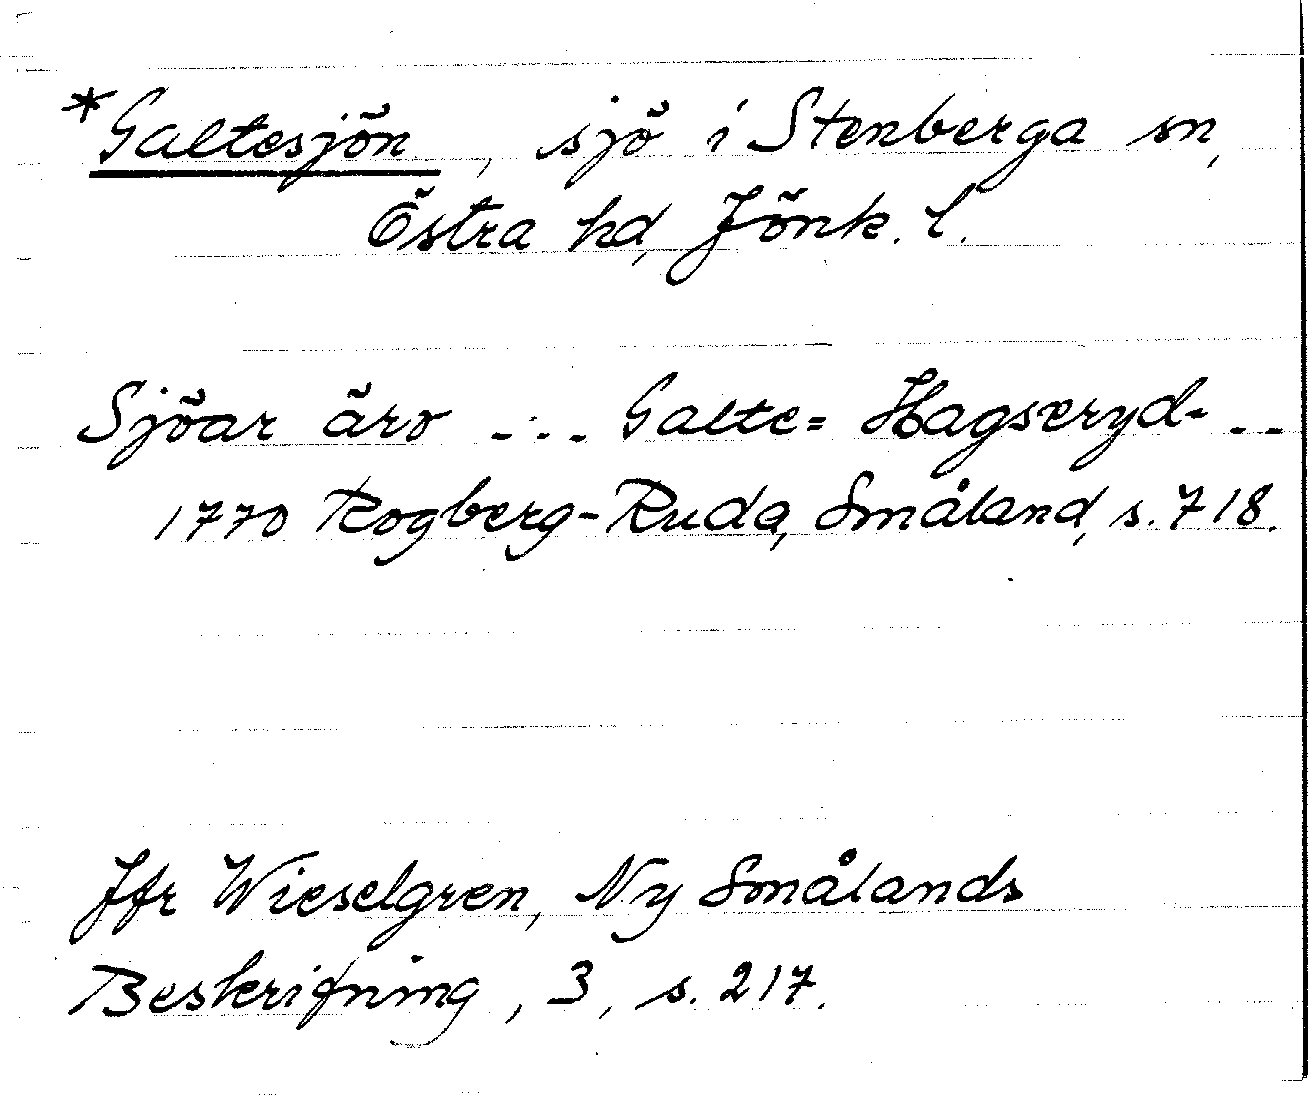 *Galtesjön, sjö i Stenberga sn,
Östra hd, Jönk. l.
Sjöar äro ... Galte= Hagseryd- --
1770 Rogberg-Ruda, Småland, s. 718.
Jfr Wieselgren, Ny Smålands
Beskrifning, 3, s. 217.